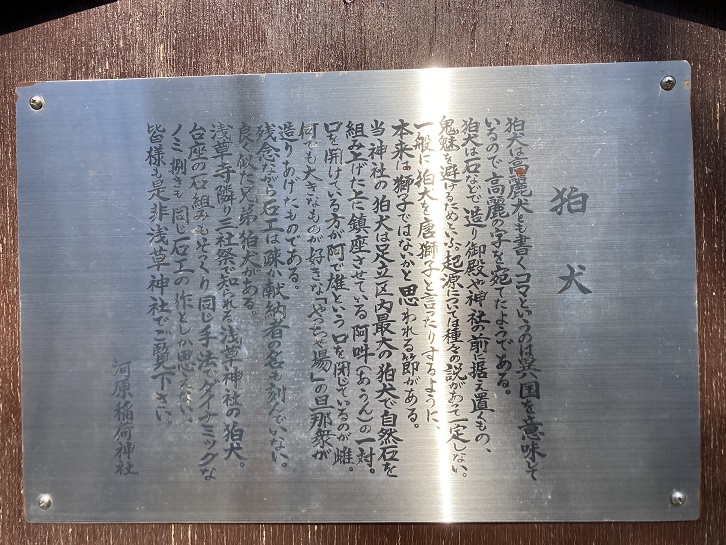 狛犬
狛犬は高麗犬とも書くコマというのは異国を意味して
いるので高麗の字を宛てたようである。
狛犬は石などで造り御殿や神社の前に据え置くもの、
鬼魅を避けるためという起源については種々の説があって一定しない。
一般に狛犬を唐獅子と言ったりするように、
本来は獅子ではないかと思われる節がある。
当神社の狛犬は足立区内最大の狛犬で自然石を
組み上げた上に鎮座させている阿吽(あうん)の一対。
口を開けている方が阿で雄という口を閉じているのが雌。
何でも大きなものが好きな「やっちゃ場」の旦那衆が
造りあげたものである。
残念ながら石工は疎か献納者の名も刻んでいない。
良く似た兄弟狛犬がある。
浅草寺隣り三社祭で知られる浅草神社の狛犬。
台座の石組みもそっくり同じ手法でダイナミックな
ノミ捌きも同じ石工の作としか思えない。
皆様も是非浅草神社でご覧下さい。
河原稲荷神社